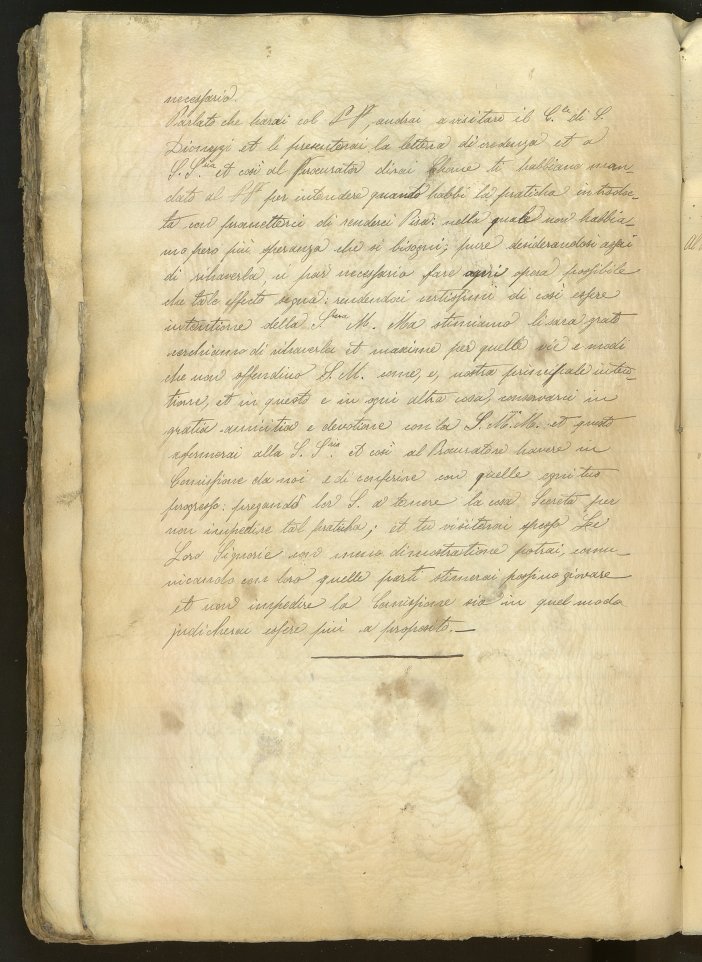 necessario.
Parlato che harai col S.r V.r, andrai a visitare il C.le di S.
Dionigi et li presenterai la lettera di credenza et a
S. S.ria et così al Procurator dirai chome ti habbiano man-
dato al per intendere quanto habbi la praticha introdoc-
ta con prometterci di renderci Pisa: nella quale non habbia-
mo pero più speranza che si bisogni; pure desiderandosi assai
di rihaverla, ci par necessario fare ogni opera possibile
che tale effecto segua: rendendoci certissimi di così essere
intentione della S. M. Ma stimiamo li sara grato
cerchiamo di rihaverla et maxime per quelle vie e modi
che non offendino S. M. come, e, nostra principale inten-
tione, et in questo e in ogni altra cosa, conservarci in
gratia amicitia e devotione con la S. M. et questo
afermerai alla S. S.ria et così al Procuratore havere in
Comissione da noi e di conferire con quelle ogni tuo
progresso: pregando lor S. a tenere la cosa Secreta per
non impedire tal praticha; et tu visiterai spesso Le
Loro Signorie con meno dimostratione potrai, comu-
nicando con loro quelle parti stimerai possino giovare
et non impedire la Comissione sia in quel modo
judicherai essere più a proposito.
al